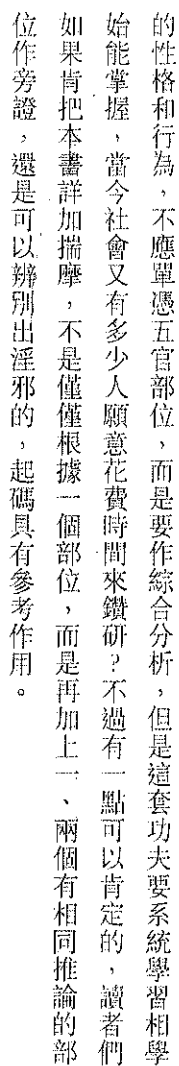 的性格和行為，不應單憑五官部位，而是要作綜合分析，但是這套功夫要系統學習相學
始能掌握，當今社會又有多少人願意花費時間來鑽研？不過有一點可以肯定的，讀者們
如果肯把本書詳加揣摩，不是僅僅根據一個部位，而是再加上一、兩個有相同推論的部
位作旁證，還是可以辨別出淫邪的，起碼具有參考作用。